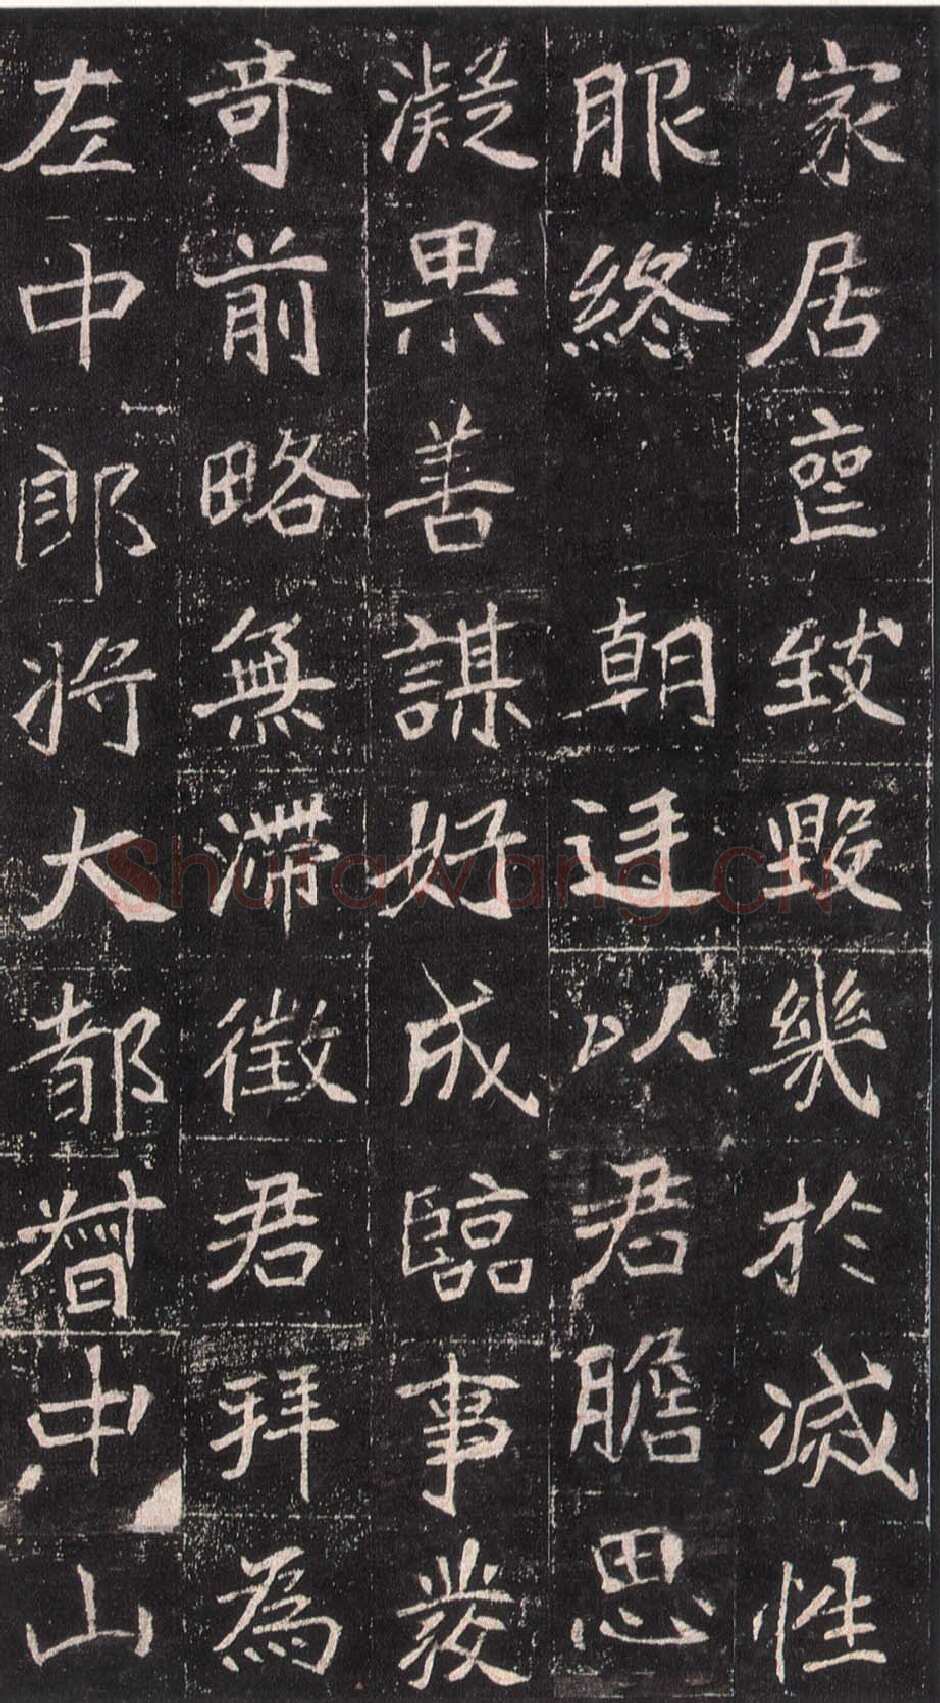 家居喪致毀幾於滅性
服終 朝廷以君膽思
凝果善謀好成臨事發
奇前略無滯徵君拜為
左中郎將大都督中山
Shufawang.cn